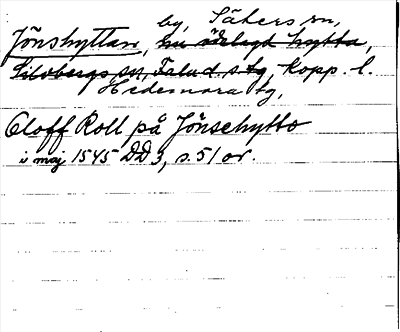 by, Säters sn,
Jönshyttan, nu ödelagd hytta,
Silvbergs sn, Falud. s. tg, Kopp. l.
Hedemora tg,
Oloff Roll på Jönsehytto
i maj 1545 DD 3, s. 51 or.